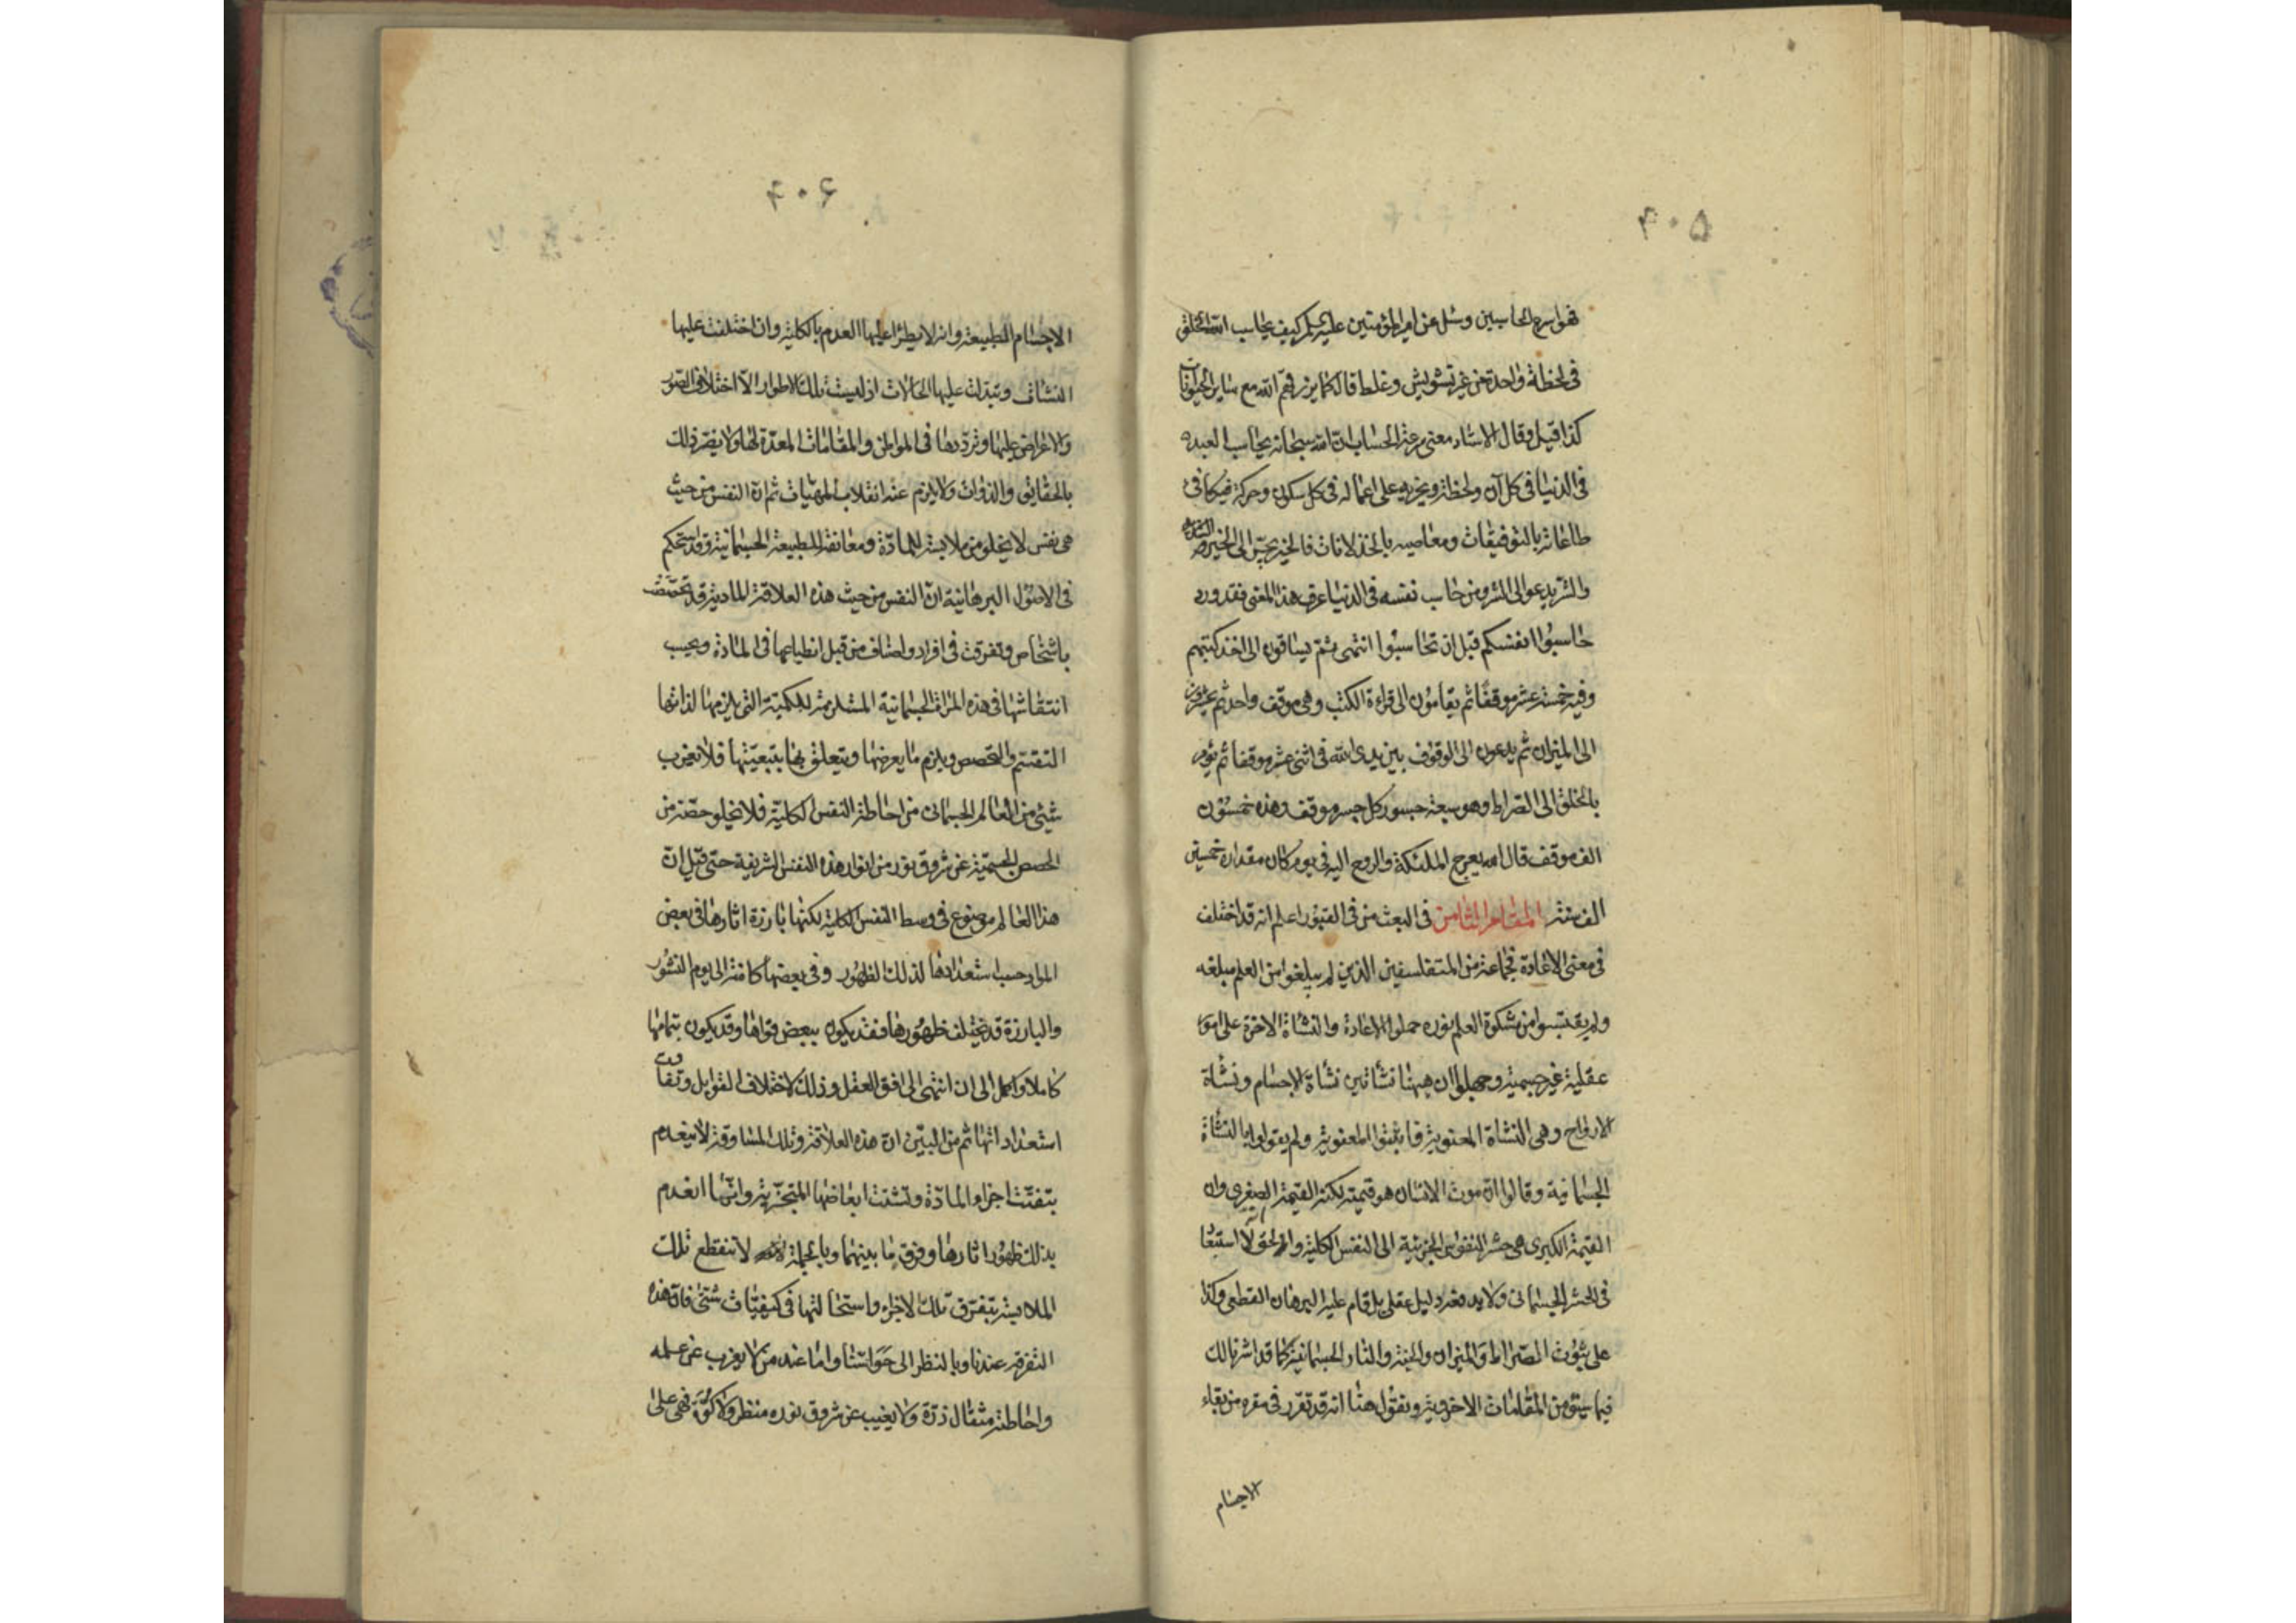 ۶۰۵
فهو اسرع الحاسبين وسئل عن امير المؤمنين عليه السلم كيف يحاسب الله الخلق
فى لحظة واحدة من غير تشويش وغلط قال كما يرزقهم الله مع ساير الحيوانات
كذا قيل وقال الاستاد معنى سرعة الحساب ان الله سبحانه يحاسب العبد
فى الدنيا فى كل آن ولحظة ويجزيه على اعماله فى كل سكون وحركة فيكافى
طاعاته بالتوفيقات ومعاصيه بالخذلانات فالخير يجرّ الى الخير
والشر يدعو الى الشر ومن حاسب نفسه فى الدنيا عرف هذا المعنى فقد ورد
حاسبوا انفسكم قبل ان تحاسبوا انتهى ثم يساقون الى اخذ كتبهم
وفيه خمسة عشر موقفا ثم يقامون الى قراءة الكتب وهى موقف واحد ثم
الى الميزان ثم يدعون الى الوقوف بين يدى الله فى اثنى عشر موقفا ثم يؤمر
بالخلق الى الصراط وهو سبعة جسور كل جسر موقف وهذه خمسون
الف موقف قال الله يعرج الملئكة والروح اليه فى يوم كان مقداره خمسين
الف سنة المقام الثامن فى البعث من فى القبور اعلم انه قد اختلف
فى معنى الاعادة فجماعة من المتفلسفين الذين لم يبلغوا من العلم مبلغه
ولم يقتبسوا من مشكوة العلم نوره حملوا الاعادة والنشاة الاخرة على امور
عقلية غير جسمية وجهلوا ان ههنا نشأتين نشاة الاجسام ونشاة
الارواح وهى النشاة المعنوية فاثبتوا المعنوية ولم يقولوا بالنشاة
الجسمانية وقالوا ان موت الانسان هو قيمته لكنه القيمة الصغرى وان
القيمة الكبرى هى حشر النفوس الجزئية الى النفس الكلية والحق انه لا استبعاد
فى الحشر الجسمانى ولا يدفعه دليل عقلى بل قام عليه البرهان القطعى وكذا
على ثبوت الصراط والميزان والجنة والنار الجسمانية كما قد اشرنا لك
فيما سبق من المقامات الاخروية ونقول هنا انه قد تقرر فى مقره من بقاء
الاجسام
۶۰۶
الاجسام الطبيعية وانه لا يطرأ عليها العدم بالكلية وان اختلفت عليها
النشآت وتبدلت عليها الحالات اذ ليست تلك الاطوار الا اختلاف الصور
والاعراض عليها وتردّدها فى المواطن والمقامات المعدّة لها ولا يضر ذلك
بالحقايق والذوات ولا يلزم عنه انقلاب المهيّات ثم ان النفس من حيث
هى نفس لا يخلو من ملابسة للمادّة ومعانقة للطبيعة الجسمانية وقد استحكم
فى الاصول البرهانية ان النفس من حيث هذه العلاقة المادية قد تحصّصت
باشخاص وتفرقت فى افراد واصناف من قبل انطباعها فى المادة وبحسب
انتقاشها فى هذه المراة الجسمانية المستلزمة للكمية التى يلزمها لذاتها
التقسّم والتحصص ويلزم ما يعرضها ويتعلق بها بتبعيّتها فلا يعزب
شيئ من العالم الجسمانى من احاطة النفس الكلية فلا يخلو حصّة من
الحصص الجسميّة عن شروق نور من انوار هذه النفس الشريفة حتى قيل ان
هذا العالم موضوع فى وسط النفس الكلية لكنها بارزة اثارها فى بعض
المواد حسب استعدادها لذلك الظهور وفى بعضها كامنة الى يوم النشور
والبارزة قد يختلف ظهورها فقد يكون ببعض قواها وقد يكون بتمامها
كاملا واكمل الى ان انتهى الى افق العقل وذلك لاختلاف القوابل وتفاوت
استعداداتها ثم من البيّن ان هذه العلاقة وتلك المساوقة لا ينعدم
بتفتّت اجزاء المادّة وتشتت ابعاضها المتجزّية وانّما انعدم
بذلك ظهور اثارها وفرق ما بينهما وبالجملة لا ينقطع تلك
الملابسة بتفرّق تلك الاجزاء واستحالتها فى كيفيّات شتّى فان هذه
التفرقة عندنا وبالنظر الى حواسّنا واما عند من لا يعزب عن علمه
واحاطته مثقال ذرّة ولا يغيب عن شروق نوره منظر ولا كوّة فهى على